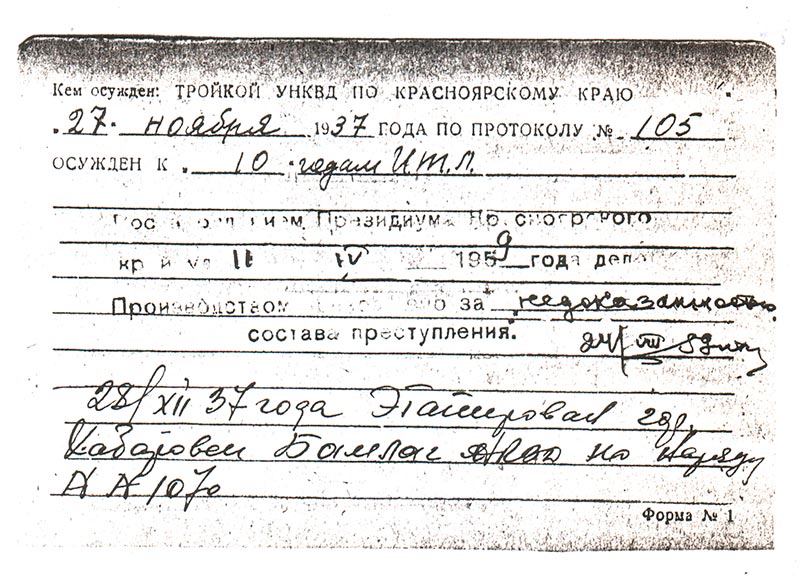 Кем осужден: ТРОЙКОЙ УНКВД ПО КРАСНОЯРСКОМУ КРАЮ
27. ноября 1937 ГОДА ПО ПРОТОКОЛУ № 105
ОСУЖДЕН К 10 годам И.Т.Л.
Президиума
II IV 1959 года дело
Производством за недоказанностью
состава преступления.
24/VIII 59
28/XII 37 года Этапирован гор.
Бамлаг по наряду
Форма № 1